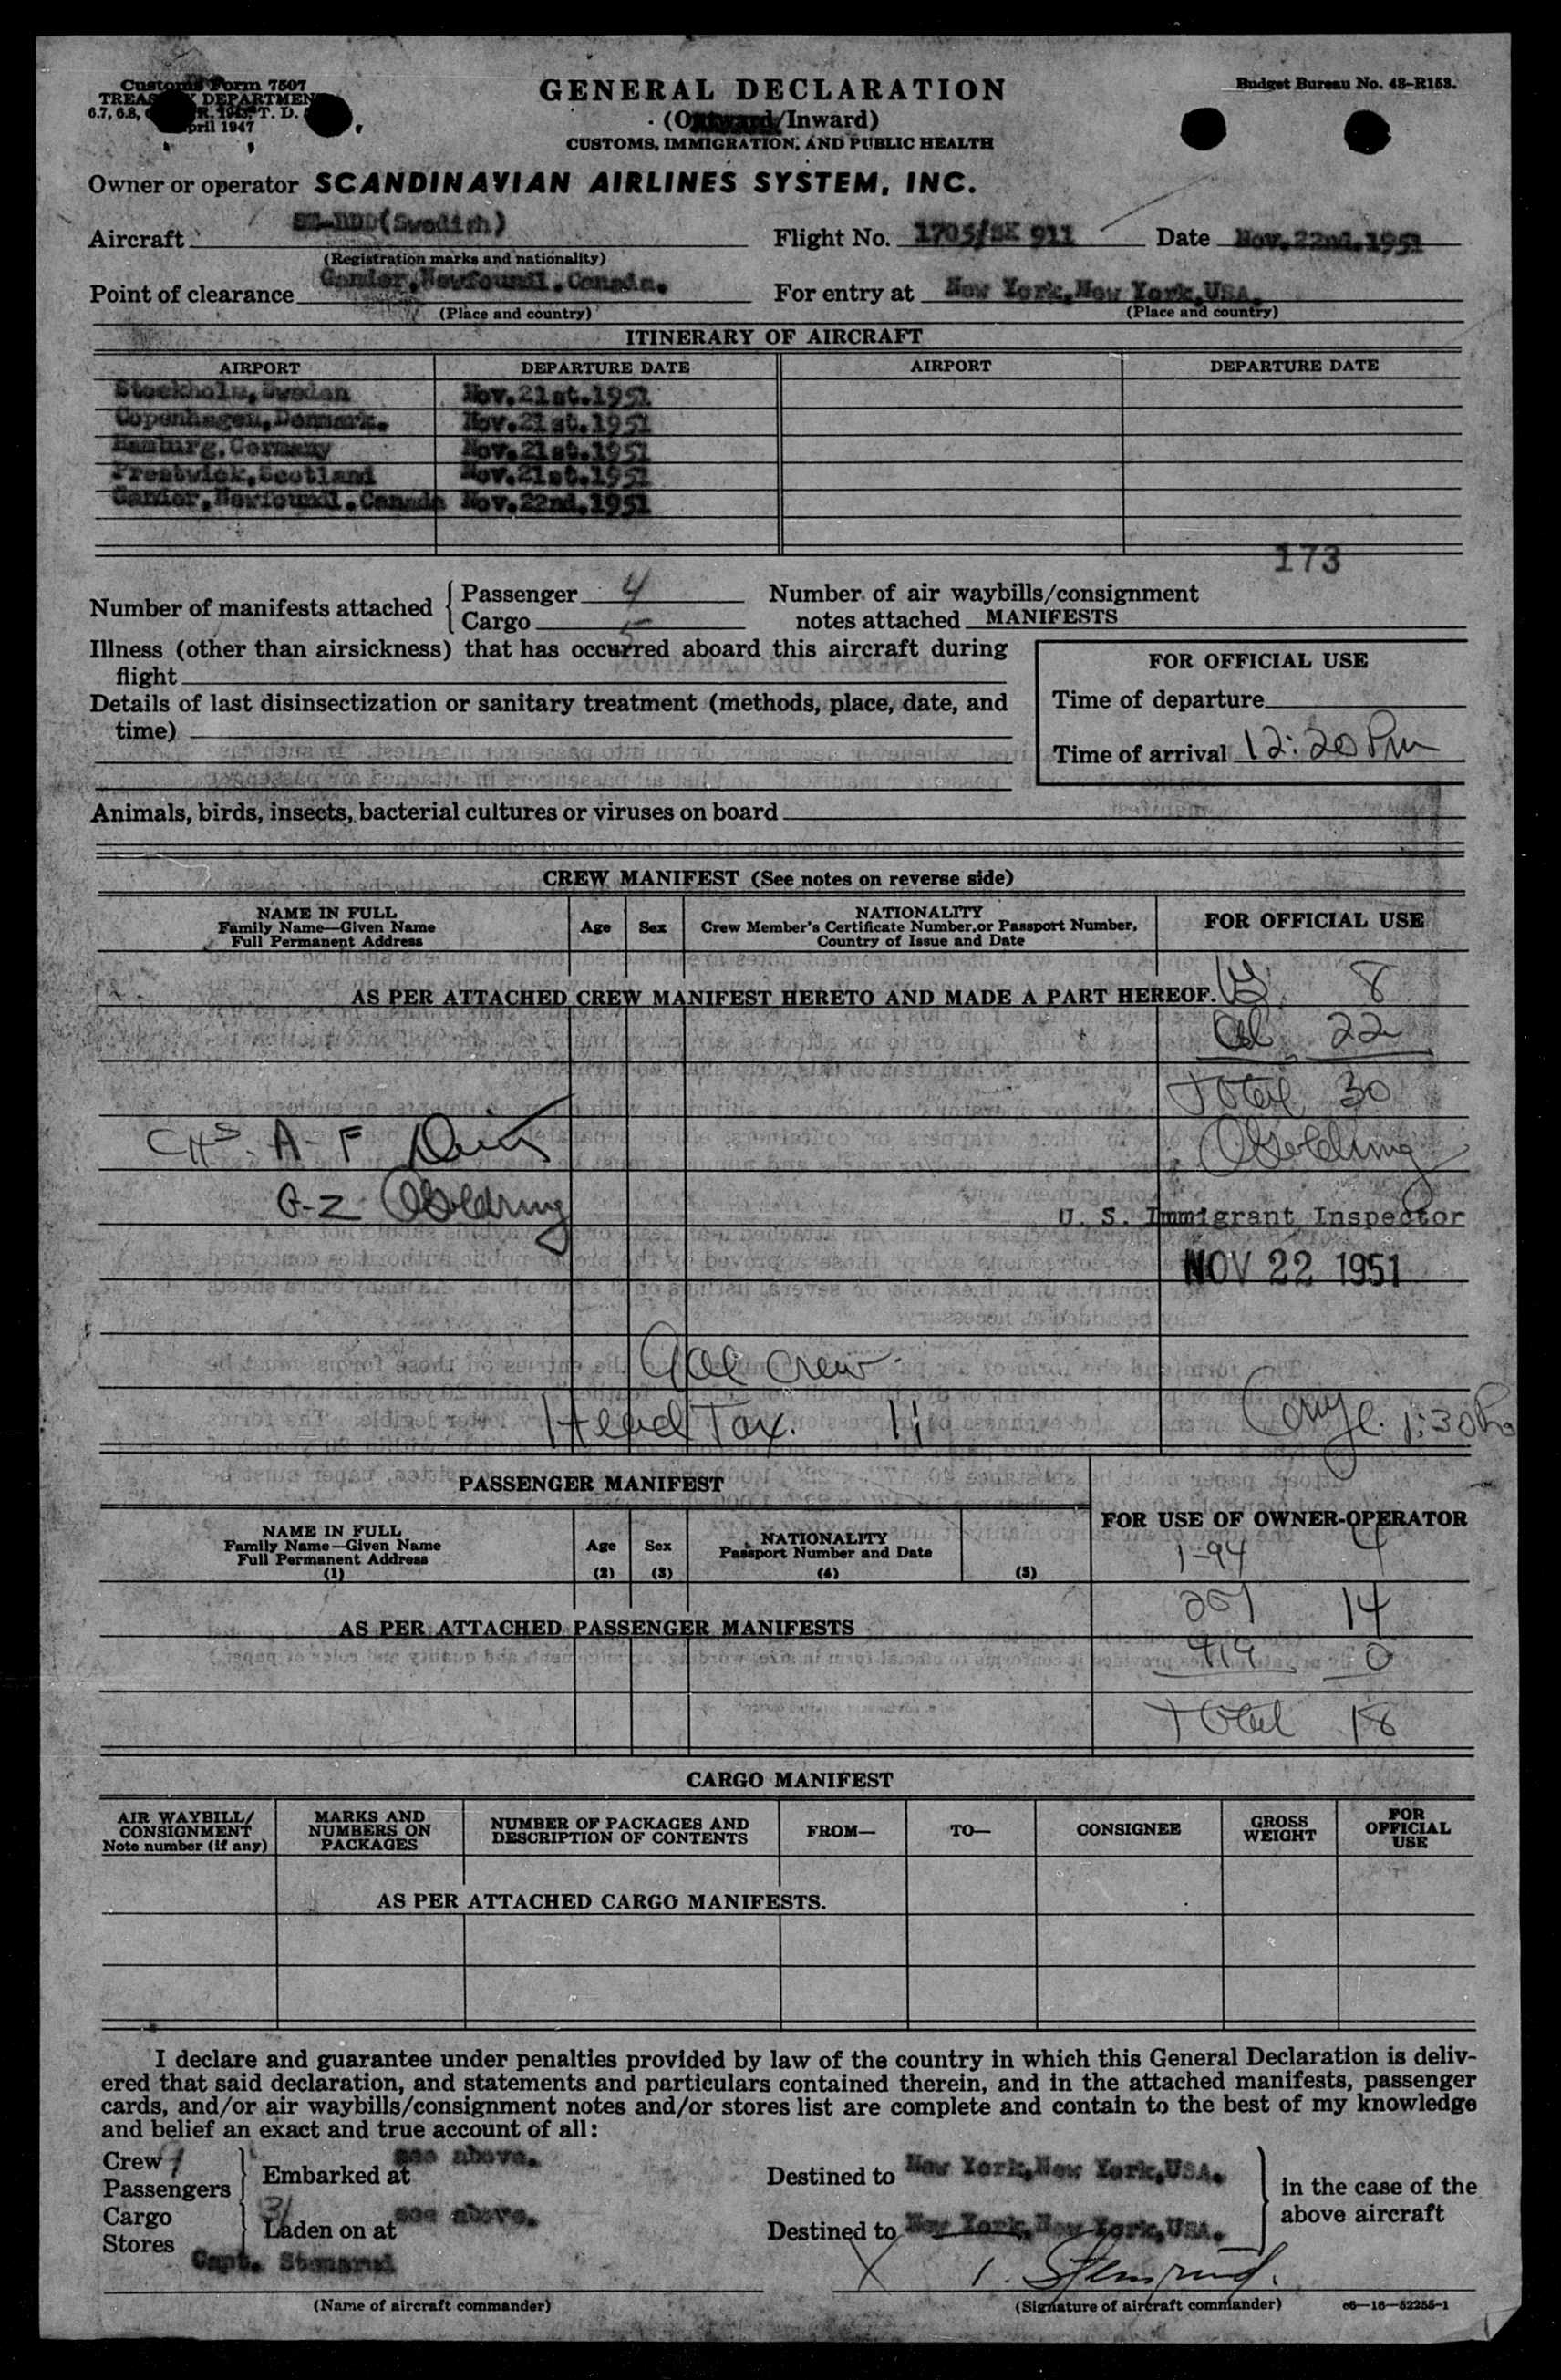 Customs Form 7507
TREASURY DEPARTMENT
April 1947
GENERAL DECLARATION
(Outward/Inward)
CUSTOMS, IMMIGRATION, AND PUBLIC HEALTH
Budget Bureau No. 48-R153.
Owner or operator SCANDINAVIAN AIRLINES SYSTEM, INC.
Aircraft (Swedish) Flight No. 1705/SK 911 Date Nov.22nd.1951
(Registration marks and nationality)
Point of clearance Gander,Newfoundl.Canada. For entry at New York,New York,USA.
(Place and country) (Place and country)
ITINERARY OF AIRCRAFT
AIRPORT DEPARTURE DATE AIRPORT DEPARTURE DATE
Stockholm,Sweden Nov.21st.1951
Copenhagen,Denmark. Nov.21st.1951
Hamburg,Germany Nov.21st.1951
Prestwick,Scotland Nov.21st.1951
Gander,Newfoundl.Canada Nov.22nd.1951
173
Number of manifests attached Passenger 4 Number of air waybills/consignment
Cargo 5 notes attached MANIFESTS
Illness (other than airsickness) that has occurred aboard this aircraft during
flight
Details of last disinsectization or sanitary treatment (methods, place, date, and
time)
FOR OFFICIAL USE
Time of departure
Time of arrival 12:20 Pm
Animals, birds, insects, bacterial cultures or viruses on board
CREW MANIFEST (See notes on reverse side)
NAME IN FULL
Family Name—Given Name
Full Permanent Address
Age Sex
NATIONALITY
Crew Member's Certificate Number, or Passport Number,
Country of Issue and Date
FOR OFFICIAL USE
AS PER ATTACHED CREW MANIFEST HERETO AND MADE A PART HEREOF. 8
22
Total 30
A-F
Goldring
G-Z Goldring
U. S. Immigrant Inspector
NOV 22 1951
crew
Head Tax. 11
1:30
PASSENGER MANIFEST
FOR USE OF OWNER-OPERATOR
NAME IN FULL
Family Name—Given Name
Full Permanent Address
(1)
Age
(2)
Sex
(3)
NATIONALITY
Passport Number and Date
(4)
(5)
1-94 4
257 14
AS PER ATTACHED PASSENGER MANIFESTS
419 0
Total 18
CARGO MANIFEST
AIR WAYBILL/
CONSIGNMENT
Note number (if any)
MARKS AND
NUMBERS ON
PACKAGES
NUMBER OF PACKAGES AND
DESCRIPTION OF CONTENTS
FROM—
TO—
CONSIGNEE
GROSS
WEIGHT
FOR
OFFICIAL
USE
AS PER ATTACHED CARGO MANIFESTS.
I declare and guarantee under penalties provided by law of the country in which this General Declaration is deliv-
ered that said declaration, and statements and particulars contained therein, and in the attached manifests, passenger
cards, and/or air waybills/consignment notes and/or stores list are complete and contain to the best of my knowledge
and belief an exact and true account of all:
Crew
Passengers
Embarked at see above. Destined to New York,New York,USA.
in the case of the
above aircraft
Cargo
Stores
Laden on at see above. Destined to New York,New York,USA.
Capt. Stensrud
X Stensrud.
(Name of aircraft commander) (Signature of aircraft commander) c6—16—52255-1